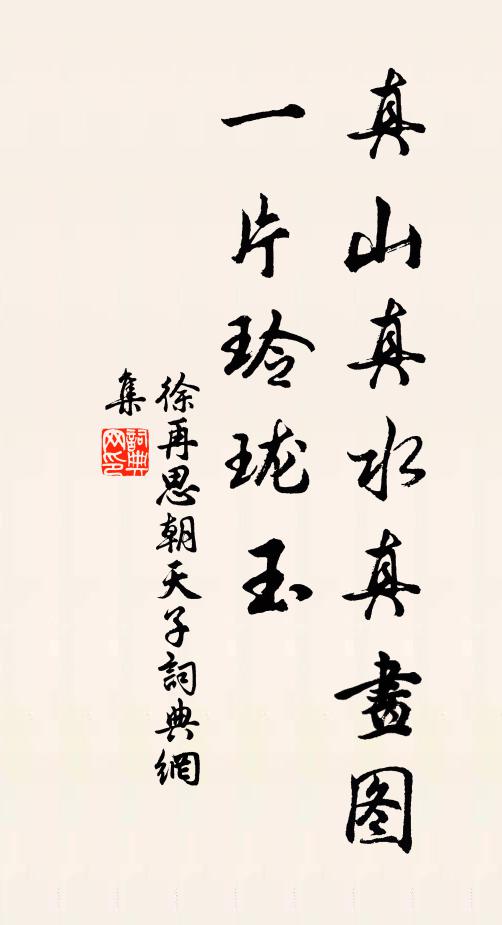 真山真水真畫图
一片玲珑玉
徐再思朝天子詞典網
集
詞典
网印